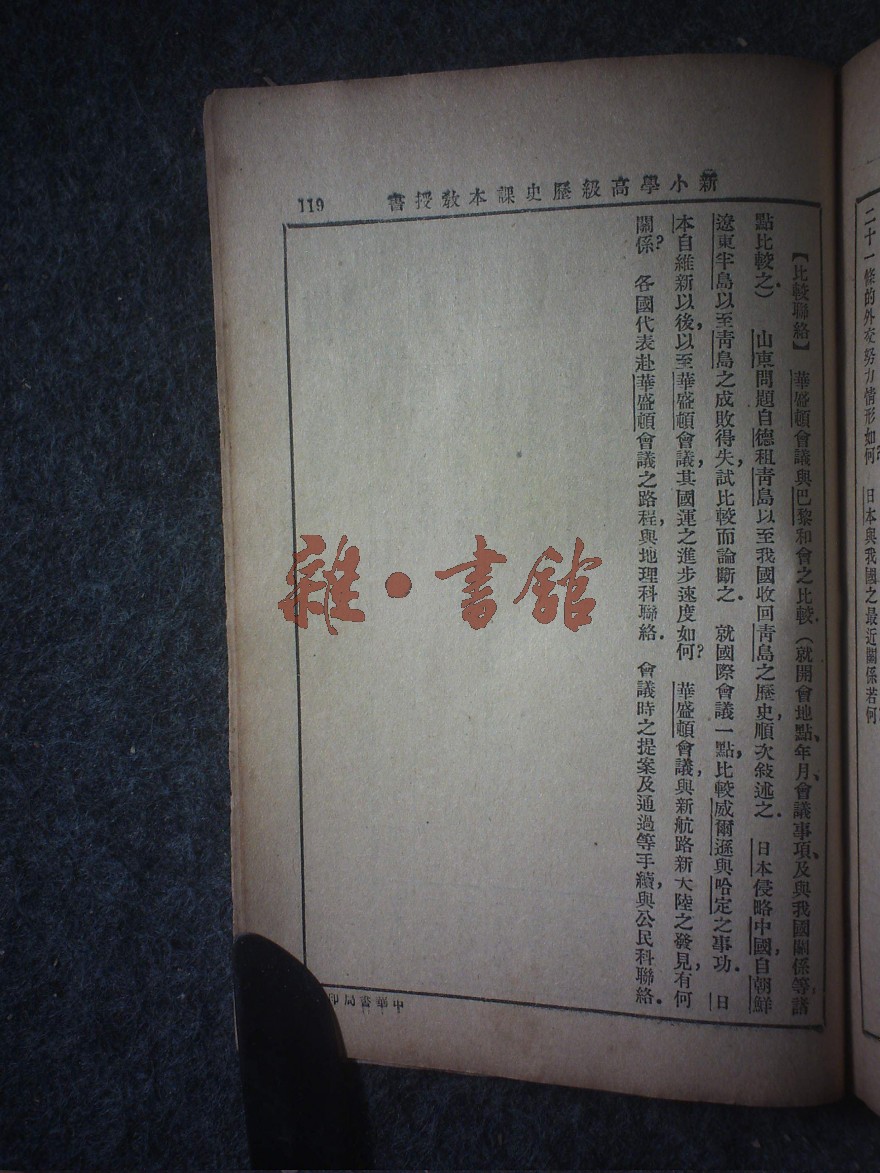 二十一條的外交努力情形如何？ 日本與我國之最近關係若何
新小學高級歷史課本教授書
119
【比較聯絡】 華盛頓會議與巴黎和會之比較．（就開會地點、年月、會議事項、及與我國關係等，諸
點比較之．） 山東問題自德租青島以至我國收回青島之歷史，順次敍述之． 日本侵略中國，自朝鮮
遼東半島以至青島之成敗得失，試比較而論斷之． 就國際會議一點，比較威爾遜與哈定之事功． 日
本自維新以後，以至華盛頓會議，其國運之進步速度如何？ 華盛頓會議，與新航路新大陸之發見，有何
關係？ 各國代表赴華盛頓會議之路程，與地理科聯絡． 會議時之提案及通過等手續，與公民科聯絡．
中華書局印
雜·書館